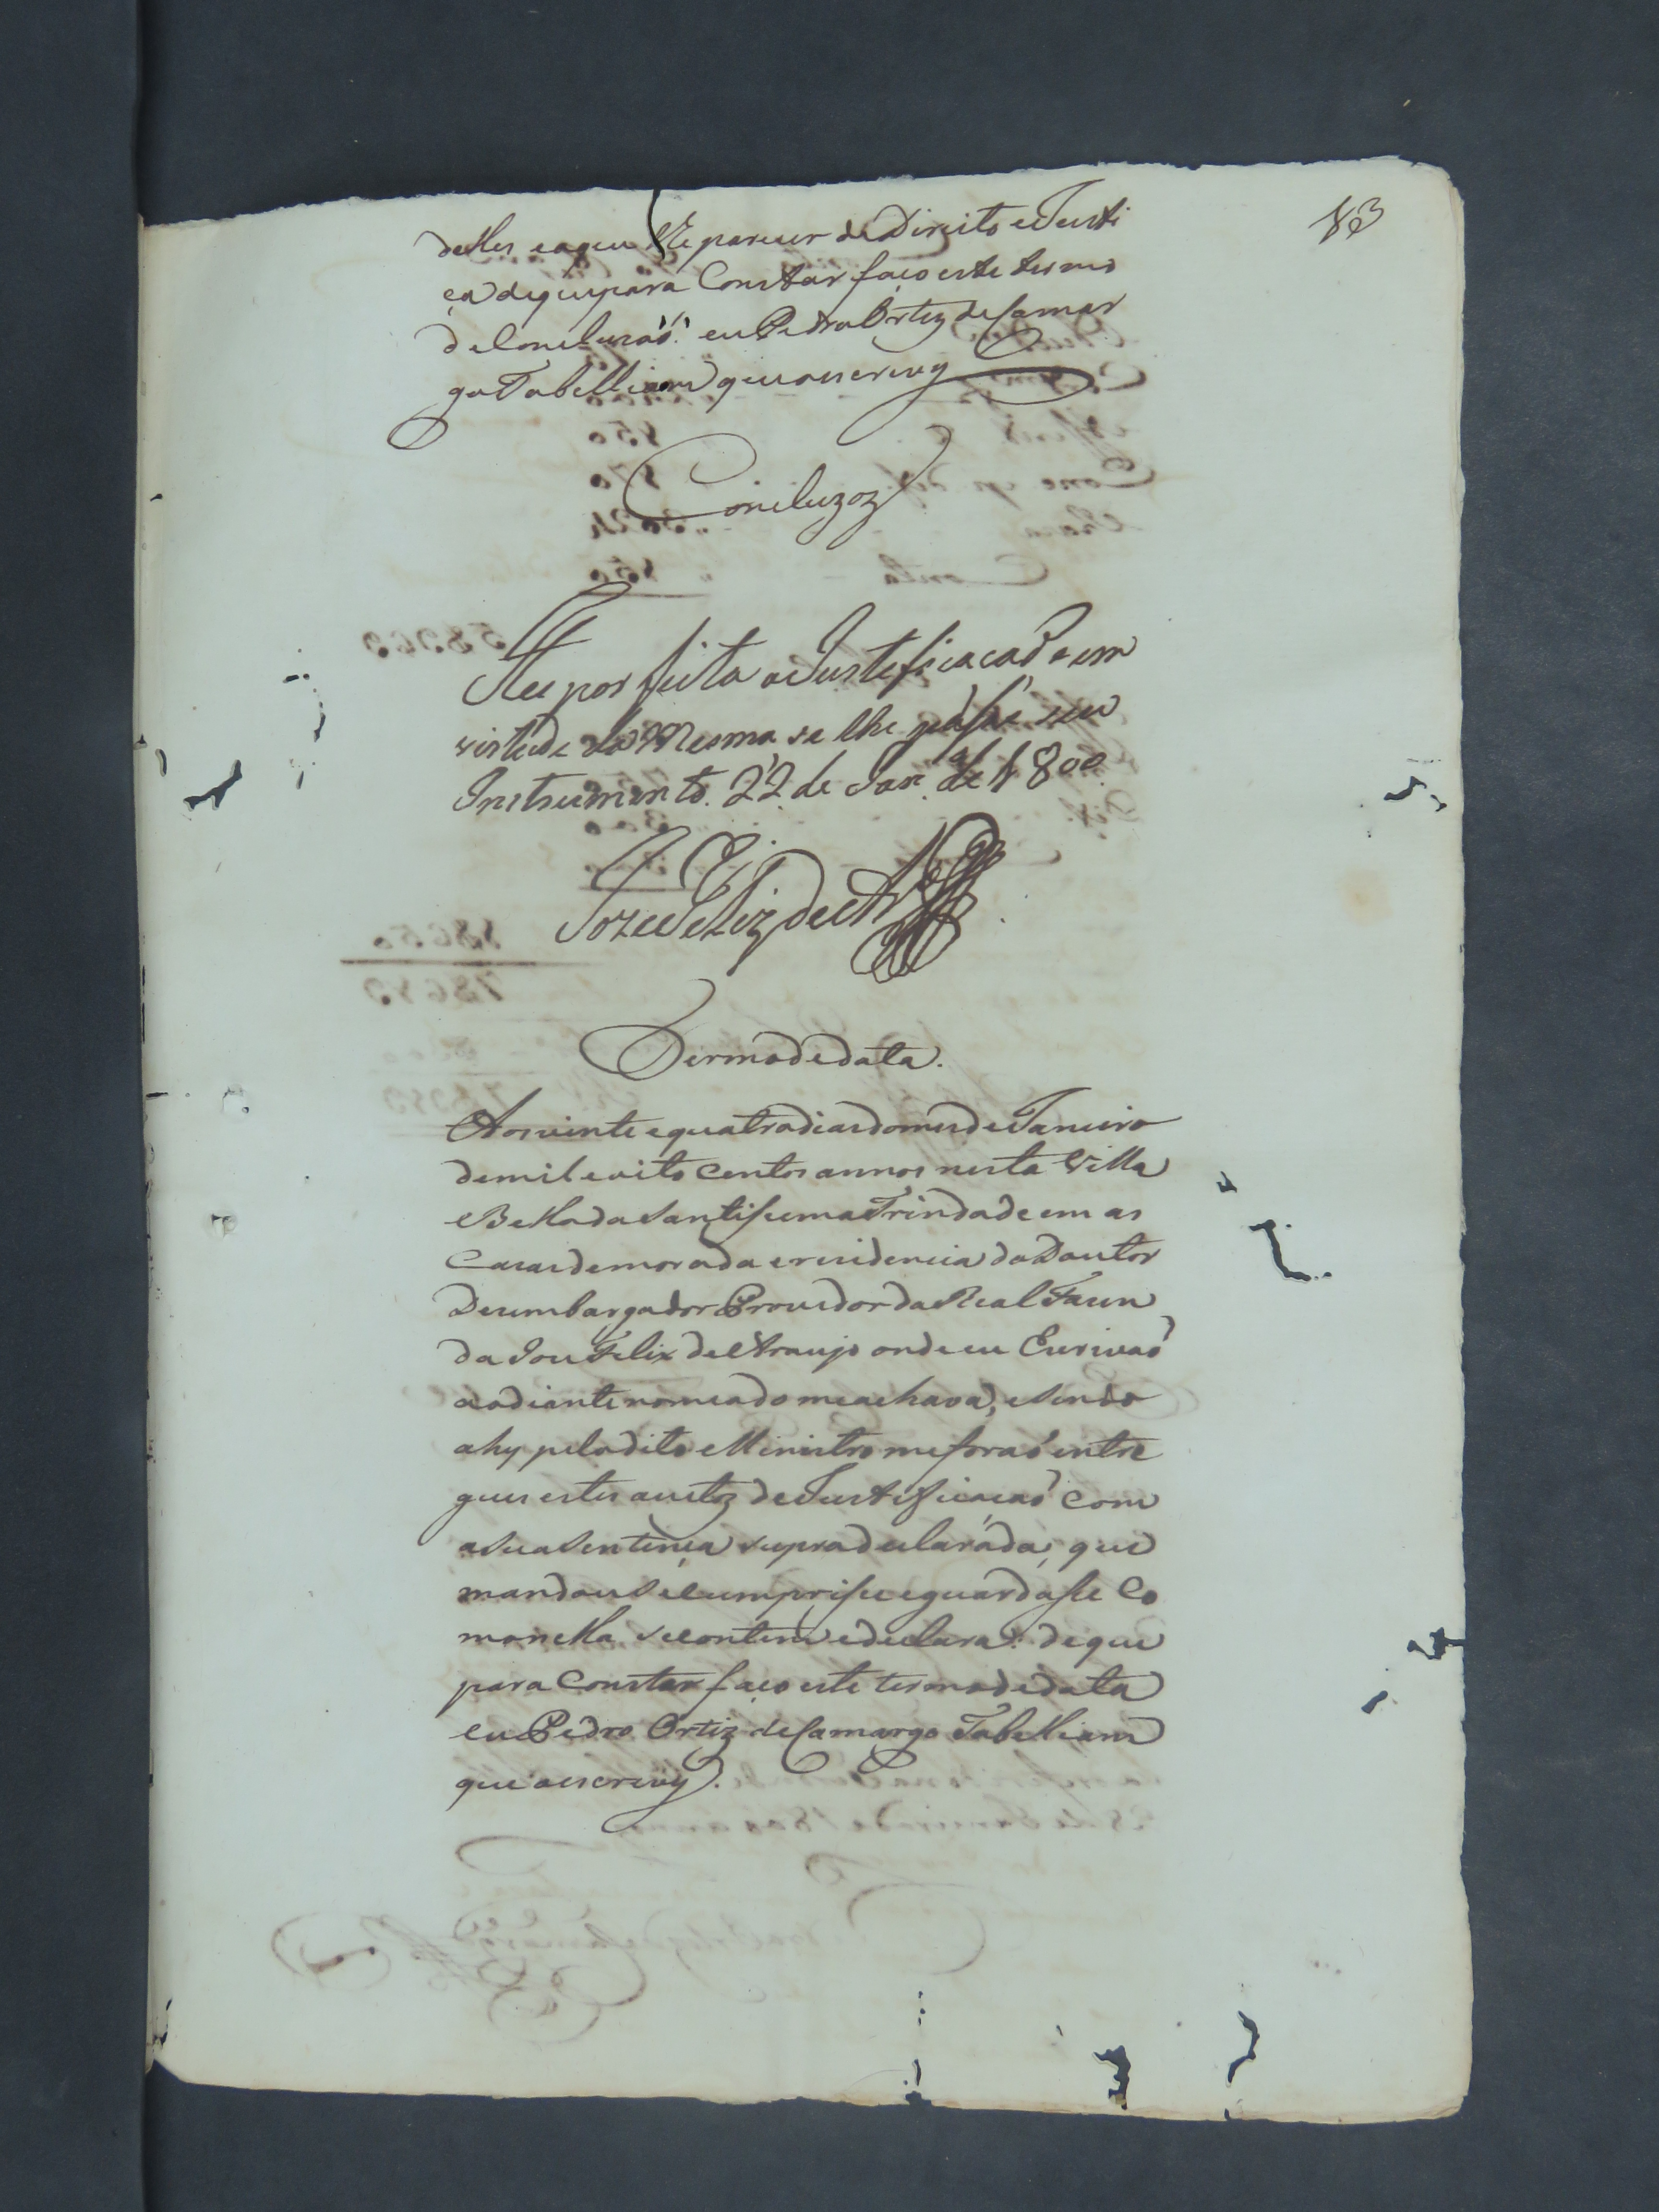 13
delles eoque lhe parecer de Direito e Justi
ça de que para Constar faço este termo
de Concluzaõ. eu Pedro Ortiz de Camar
go Tabelliam que o escrevy
Concluzoz
Hei por feita a Justeficacaõ e em
virtude da Mesma se lhe passe seu
Instrumento. 22 de Jan.ro de 1800
Joze Feliz de
Termo de data.
Aos vinte e quatro dias do mes de Janeiro
de mil e oito Centos annos nesta Villa
Bella da Santissima Trindade em as
Cazas de morada e residencia do Doutor
Dezembargador Provedor da Real Fazen
da Joze Felix de Araujo onde eu Escrivaõ
ao diante nomeado me achava, e sendo
ahy pelo dito Ministro me foraõ entre
gues estes autoz de Justificacaõ Com
a sua Sentença supra declaráda, que
mandou se cumprisse e guardasse Co
mo nella se contem e declara: de que
para Constar faço este termo de data
eu Pedro Ortiz de Camargo Tabelliam
que o escrevy.